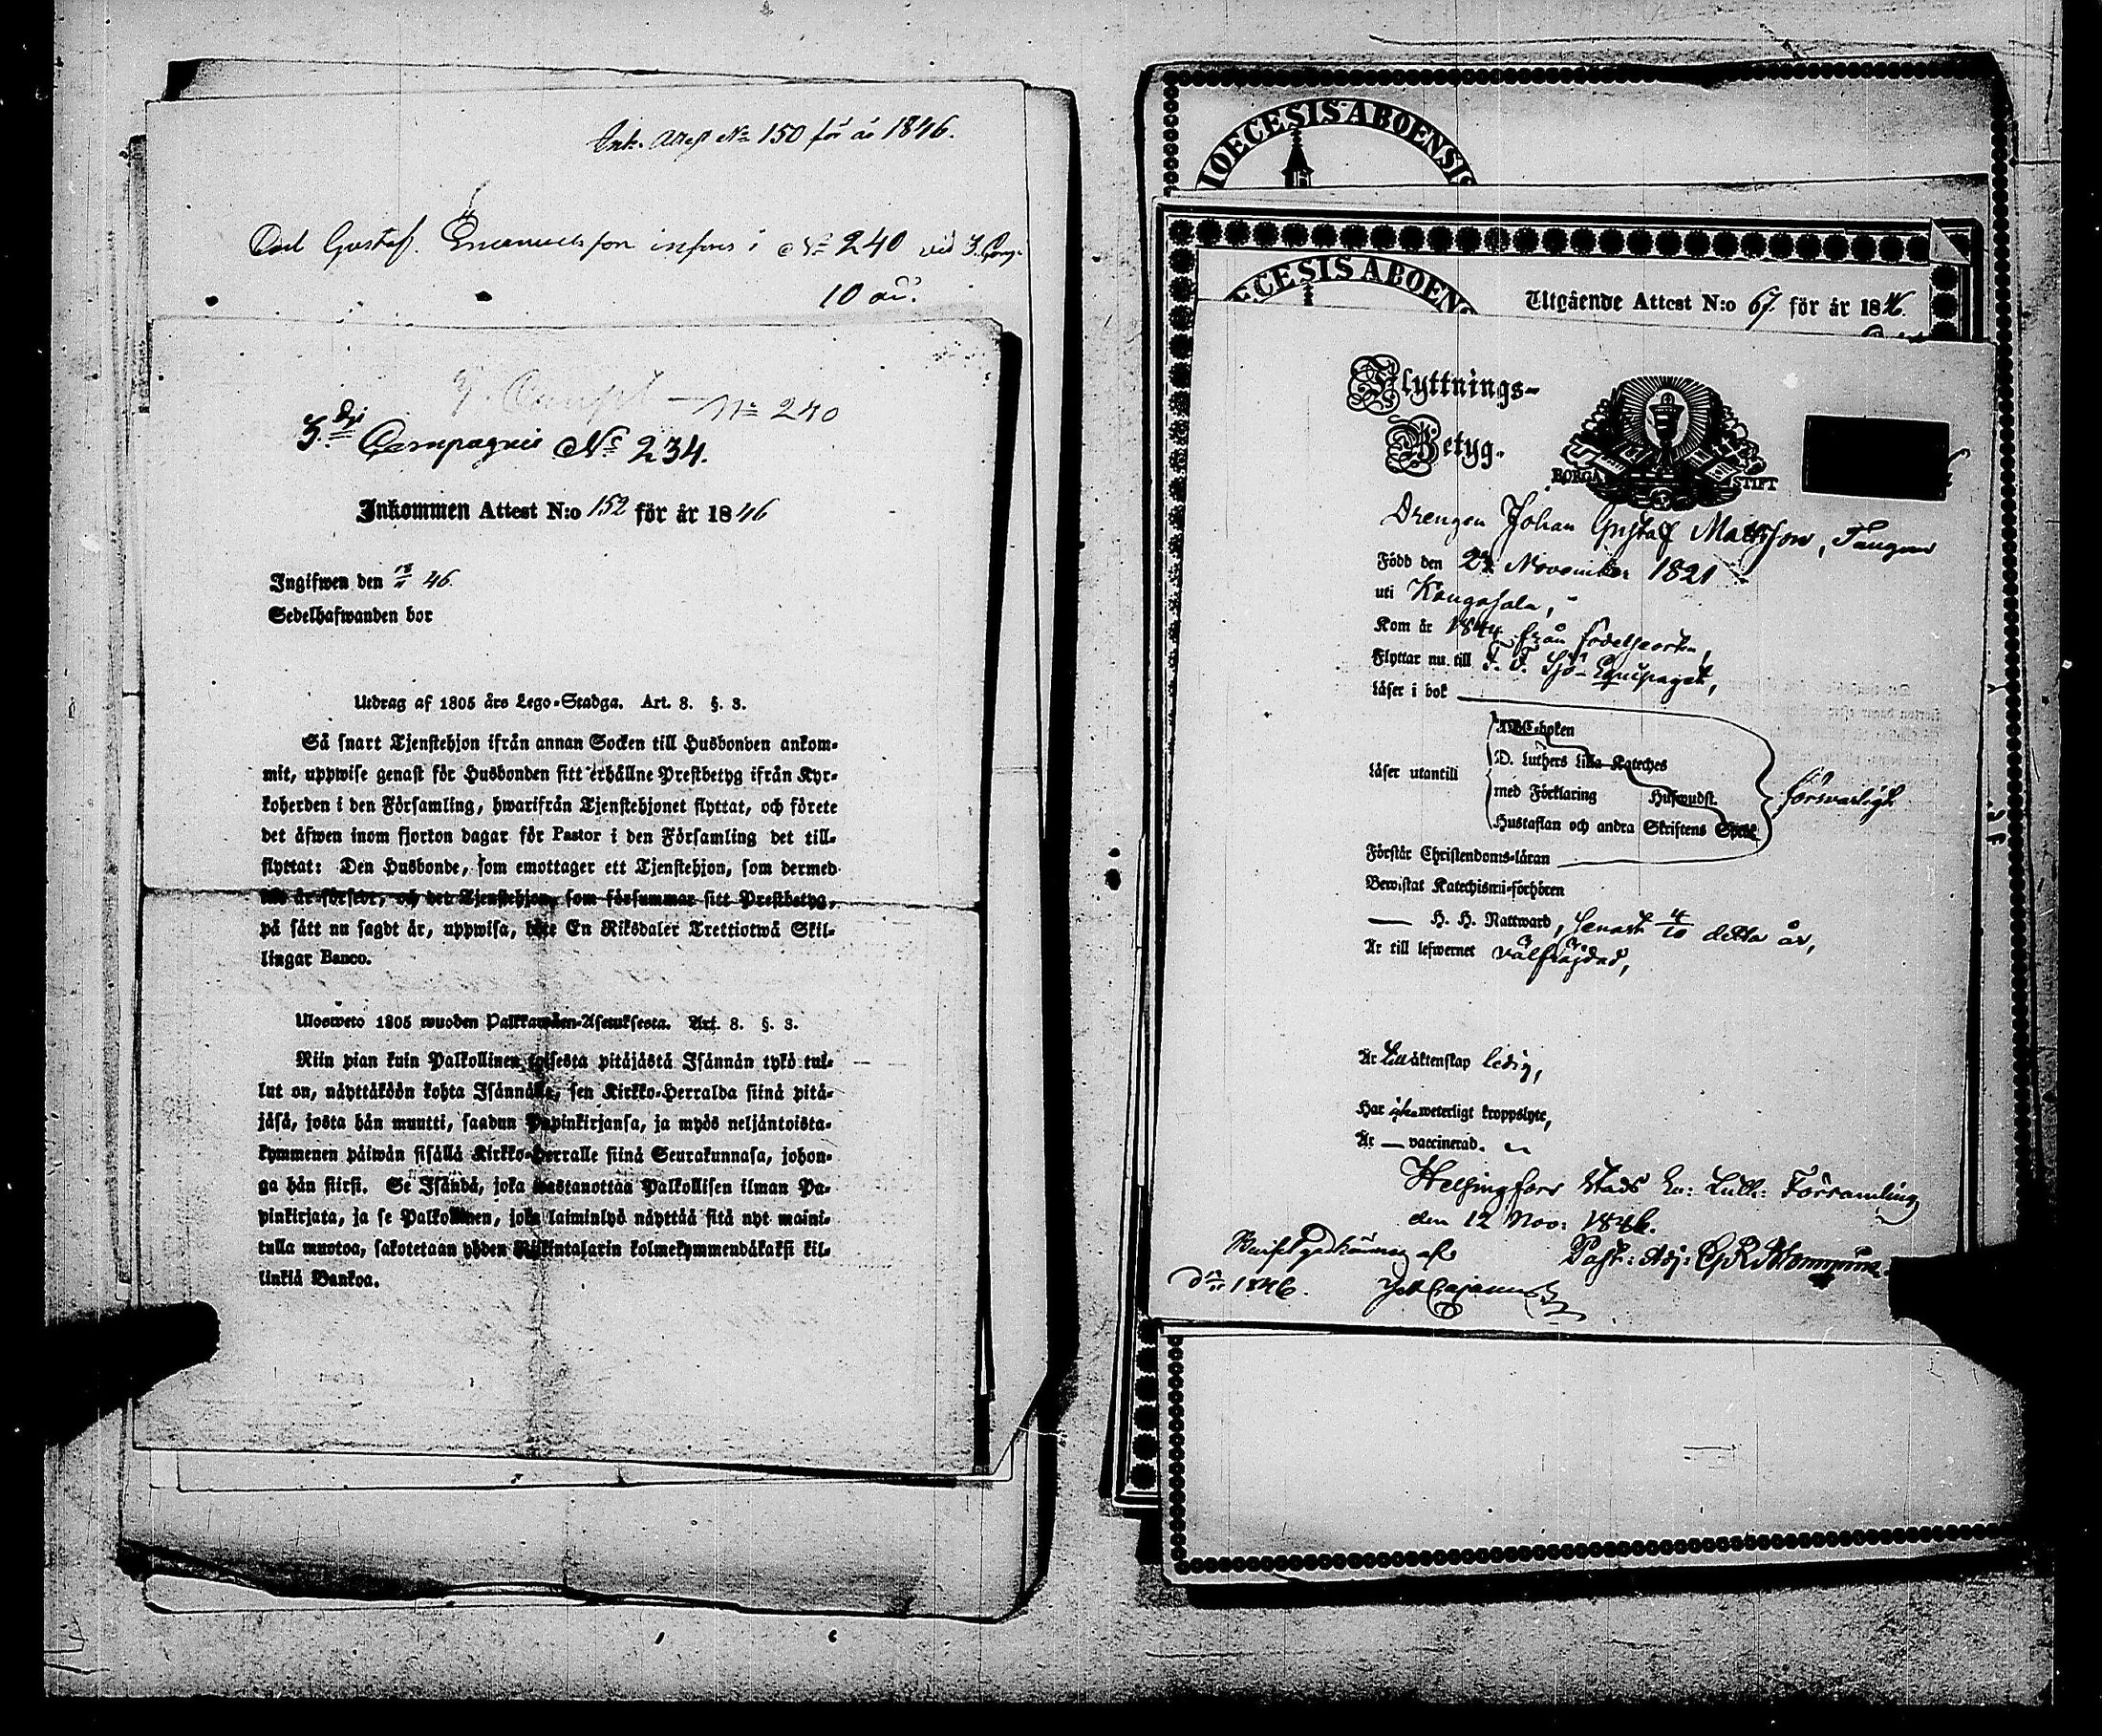 Ink. Attest No 150 för år 1846.
Carl Gustaf Emanuelsson införes i No 240 vid 3. Comp.
10 
No 240
3.dje Compagnie No 234.
Inkommen Attest N:o 152 för år 1846
Ingifwen den 18/11 46.
Sedelhafwanden bor
Utdrag af 1805 års Lego-Stadga. Art. 8. §. 3.
Så snart Tjenstehjon ifrån annan Socken till Husbonden ankom-
mit, uppwise genast för Husbonden sitt erhållne Prestbetyg ifrån Kyr-
koherden i den Församling, hwarifrån Tjenstehjonet flyttat, och förete
det äfwen inom fjorton dagar för Pastor i den Församling det till-
flyttat: Den Husbonde, som emottager ett Tjenstehjon, som dermed
är försedt, och det Tjenstehjon, som försummar sitt Prestbetyg,
på sätt nu sagdt är, uppwisa, böte En Riksdaler Trettiotwå Skil-
lingar Banco.
Ulosweto 1805 wuoden Palkkawäen-Asetuksesta. Art. 8. §. 3.
Niin pian kuin Palkollinen toisesta pitäjästä Isännän tykö tul-
lut on, näyttäköön kohta Isännälle, sen Kirkko-Herralda siinä pitä-
jäsä, josta hän muutti, saadun Papinkirjansa, ja myös neljäntoista-
kymmenen päiwän sisällä Kirkko-Herralle siinä Seurakunnasa, johon-
ga hän siirsi. Se Isändä, joka wastanottaa Palkollisen ilman Pa-
pinkirjata, ja se Palkollinen, joka laiminlyö näyttää sitä nyt maini-
tulla muotoa, sakotetaan yhden Riikintalarin kolmekymmendäkaksi kil-
linkiä Bankoa.
IOECESIS ABOENSIS
ECESIS ABOENS
Utgående Attest N:o 67. för år 1846.
Flyttnings-
Betyg.
BORGÅ STIFT
Drengen Johan Gustaf Mattsson, Tangen
Född den 22 November 1821
uti Kangasala,
Kom år 1844 från födelseorten,
Flyttar nu till F. F. Sjö-Equipaget,
Läser i bok
ABC-boken
D. Luthers Lilla Kateches
Läser utantill
med Förklaring Hufwudst.
försvarligt
Hustaflan och andra Skriftens Språk
Förstår Christendoms-läran
Bewistat Katechismi-förhören
— H. H. Nattward, senast 4/10 detta år,
Är till lefwernet välfräjdad,
Är till äktenskap ledig,
Har icke weterligt kroppslyte,
Är — vaccinerad.
Helsingfors Stads Ev: Luth: Församling
den 12 Nov: 1846.
Past: Adj:
1846.